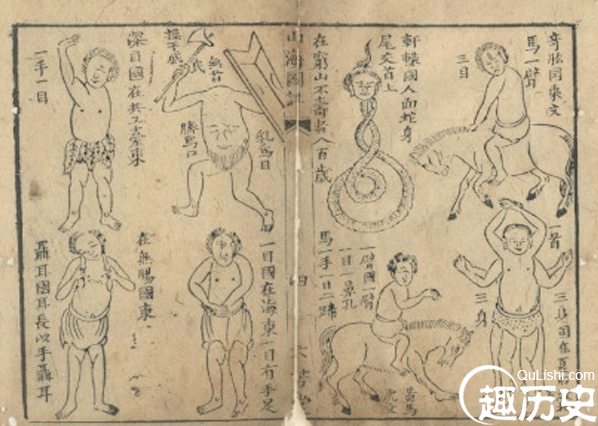 奇肱国乘文
馬一臂
三目
軒轅國人面蛇身
尾交首上
在窮山不壽者八百歲
一首
三身
三身国在夏
一臂國一臂
一目一鼻孔
馬一手
黃馬
虎文
山海
四
無首
操干戚
乳爲目
臍爲口
深目國在共工臺東
一手一目
一目國在海東一目有手足
在無腸國東
聶耳國耳長以手聶耳
QuLishi.com
趣历史